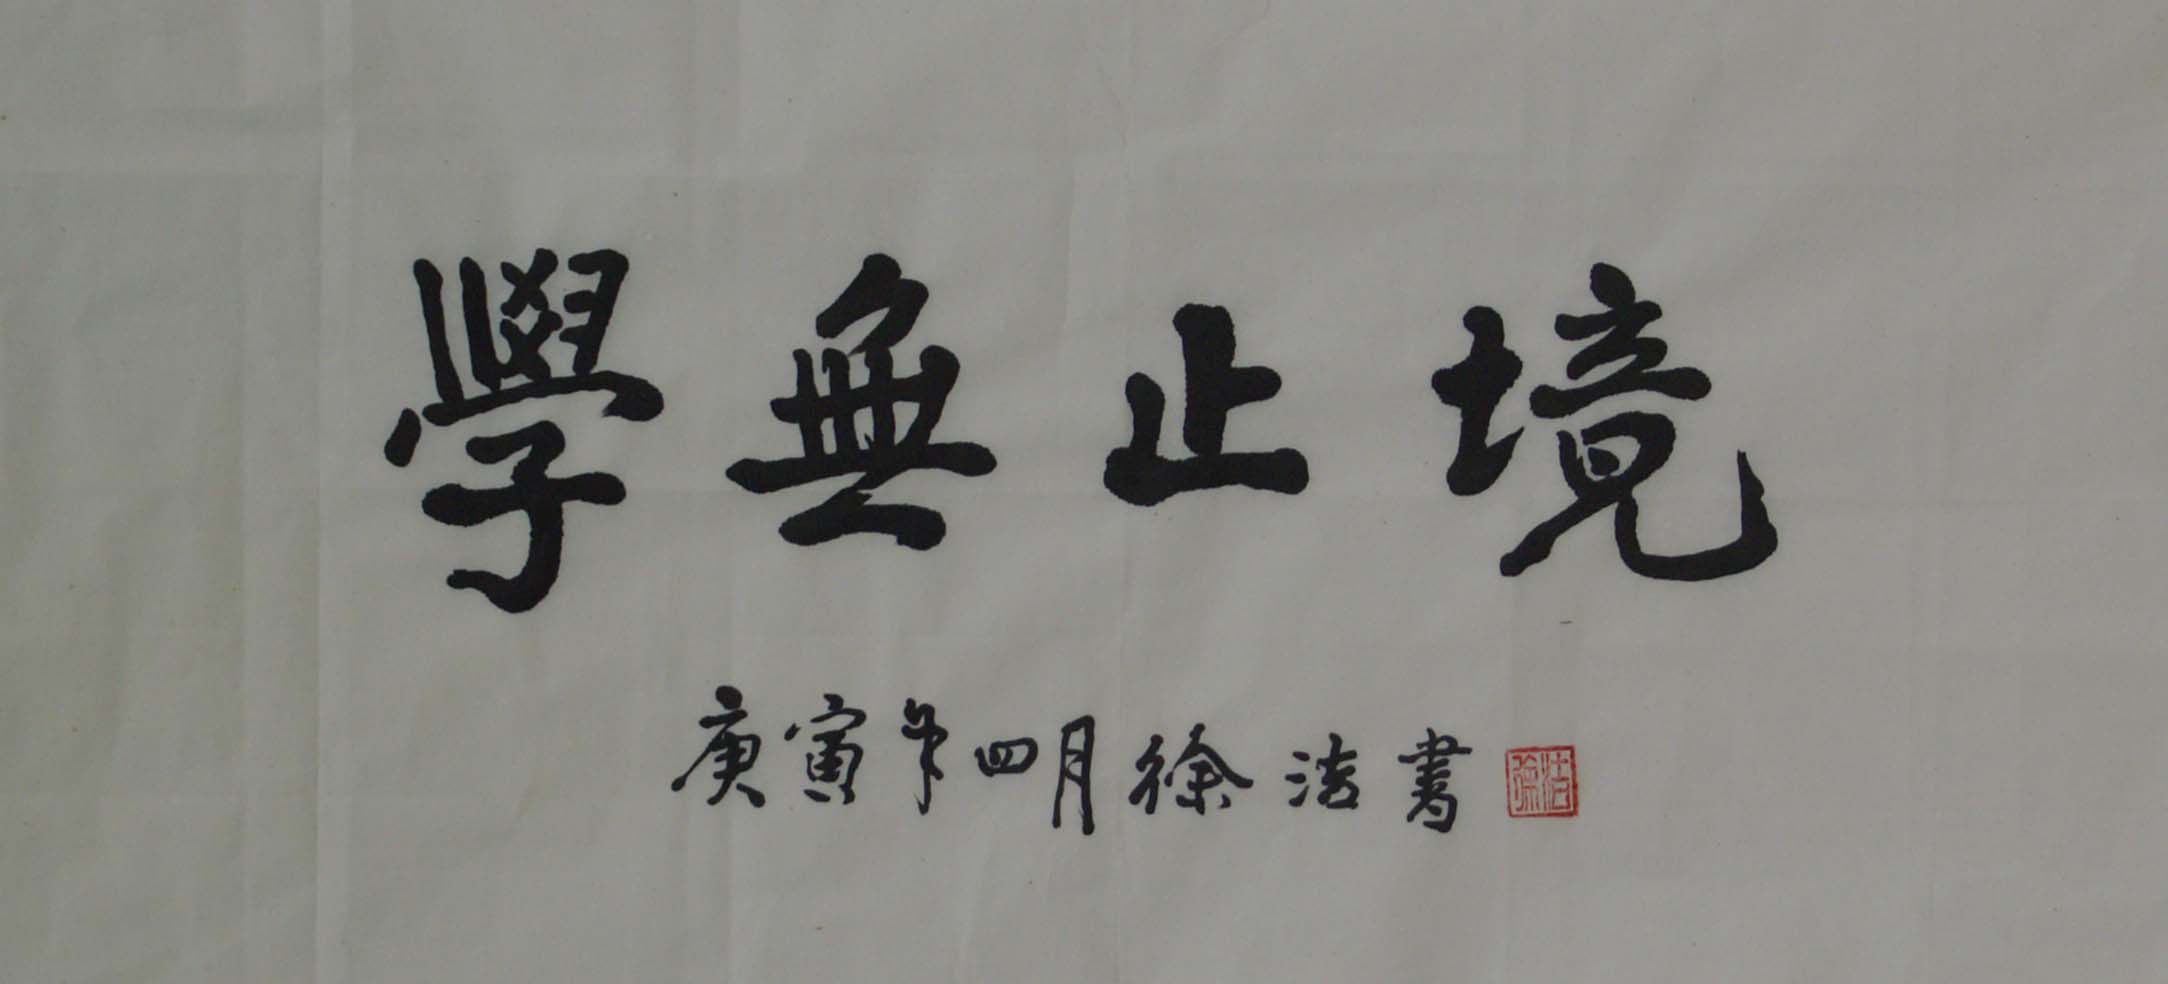 學無止境
庚寅年四月徐法書
徐法